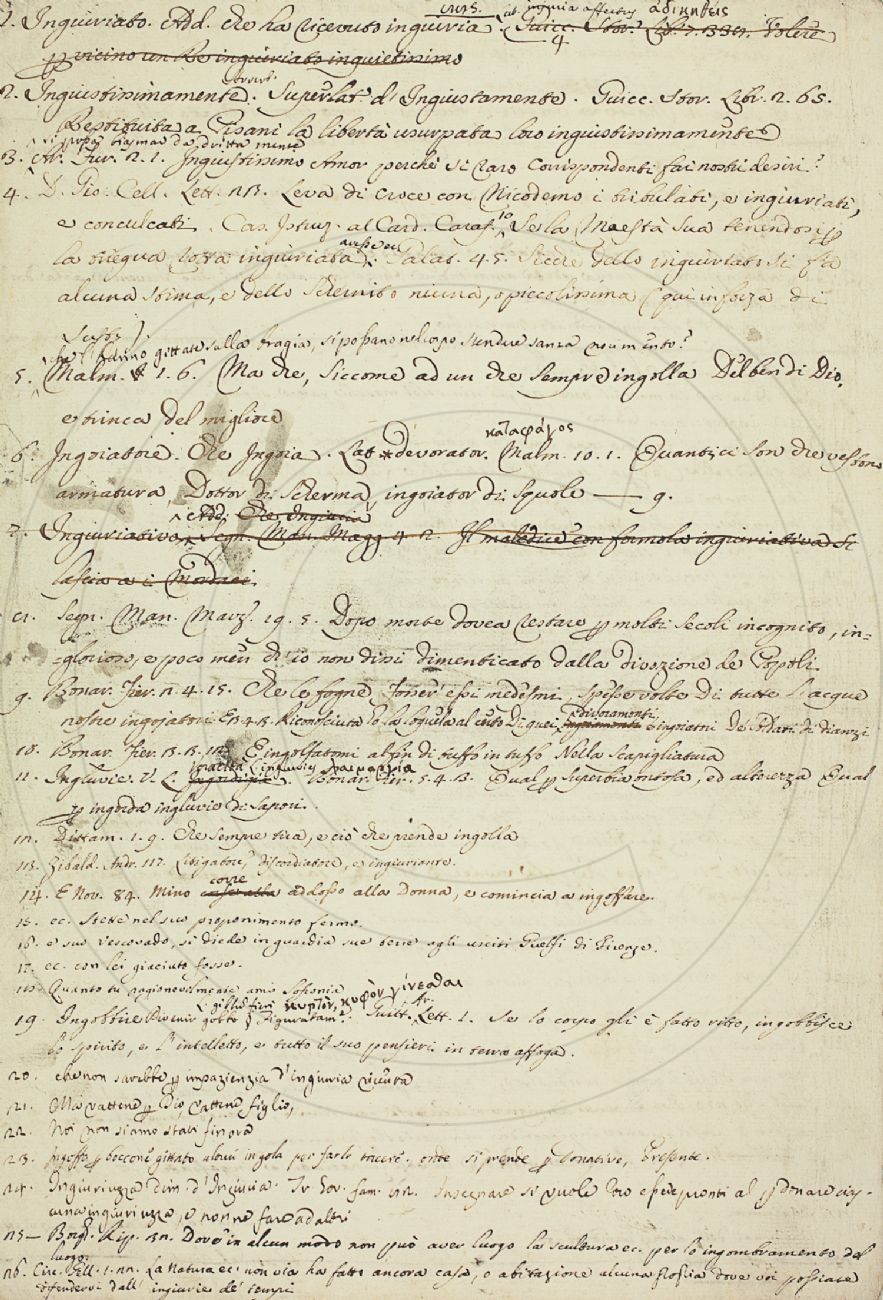 1. Ingiuriato. Add. che ha ricevuto ingiuria iniuria affectus ἀδικηθείς Guicc. Stor. Lib.
p vicino un Re ingiuriato inquietissimo
2. Ingiustissimamente. Superlat. d' Ingiustamente. Guicc. Stor. Libr. 2. 65.
Restituita a Pisani la libertà usurpata loro ingiustissimamente
3. Ar. Fur. 2. 1. Ingiustissimo Amor perchè sì raro corrispondenti fai nostri desiri?
4. D. Gio: Cell. Lett. 23. Leva di croce con Nicodemo i tribolati, e ingiuriati,
e conculcati. Cas. al Card. Caraf. Se la Maestà Sua tenendosi p
la tregua rotta ingiuriata Galat. 45. dello ingiuriato si fa
alcuna stima, e dello schernito niuna, o piccolissima (qui in forza di
Sust.)
gittate sulla bragia, si possano nel corpo
5. Malm. 1. 6. Ma che, siccome ad un che sempre ingolla Del ben di Dio,
e trinca del migliore
6. Ingoiatore. Che Ingoia. Lat. devorator. καταφάγος Malm. 10. 1. Quanti ci son che veston
armatura, Dottor di scherma, ingoiator di squole — 9.
7. Ingiuriativo Add. Che Ingiuria Segn. Mann. Magg. 4 2. Il maledice con formola ingiuriativa si
lascia a i
Segn. Man. Marz. 19. 5. Dopo morte dovea restare p molti secoli incognito, in-
-glorioso, e poco men ch' io non dissi dimenticato dalla divozione de' Popoli.
9. Bonar. Fier. 2. 4. 15. Che le fogne, essi medesmi, spesse volte Di tutte l'acque
nostre ingojatori
10. Bonar. Fier. E ingolfatomi alfin di tuffo in tuffo Nella scapigliatura
11. Ingluvie. V. L. ingluvies Bonar. Fier. 5. 4. 3. Qual p superbia ed alterezza Qual
p ingorda ingluvie di sapori.
12. Dittam. 1. 9. Che sempre tira, e ciò che prende ingolla
13. Zibald. Andr. 112. Litigatore, discordiatore, e ingiuriante.
14. E Nov. 84. Mino corre addosso alla Donna, e comincia a ingoffare.
15. ec. stette nel suo proponimento fermo.
16. e suo Vescovado, si diede in guardia sue terre agli usciti Guelfi di Firenze.
17. ec. con lei giaciuto fosse.
18. Quanto tu ragionevilmente ami Sofronia
19. Ingobbire Divenir gobbo κυφὸν γίνεσθαι Guitt. Lett. 1. Se lo corpo gli è fatto ritto, ingobbisce
lo spirito, e l'intelletto, e tutto il suo pensieri in terra affoga.
20. che non sarebbe p impazienzia d'ingiuria
21. Ma vattene p Dio, vattene figlio,
22. Noi non siamo stati finora
23. Ingoffo p boccone gittato altrui in gola per farlo tacere, onde si prende p donativo, Presente.
24. Ingiuriuzza dim. d' Ingiuria. Tr. Gov. fam. Insegnare si vuole loro esser pronti al pdonare cias-
cuna ingiuriuzza, e nonne fare ad altri
25 — Borgh. Rip. Dove in alcun modo non può aver luogo la scultura ec. per lo ingombramento del
luogo.
26. Circ. Gell. La natura ec. non via ha fatto ancora casa, o abitazione alcuna dove voi possiate
difendervi dall' ingiurie de' tempi